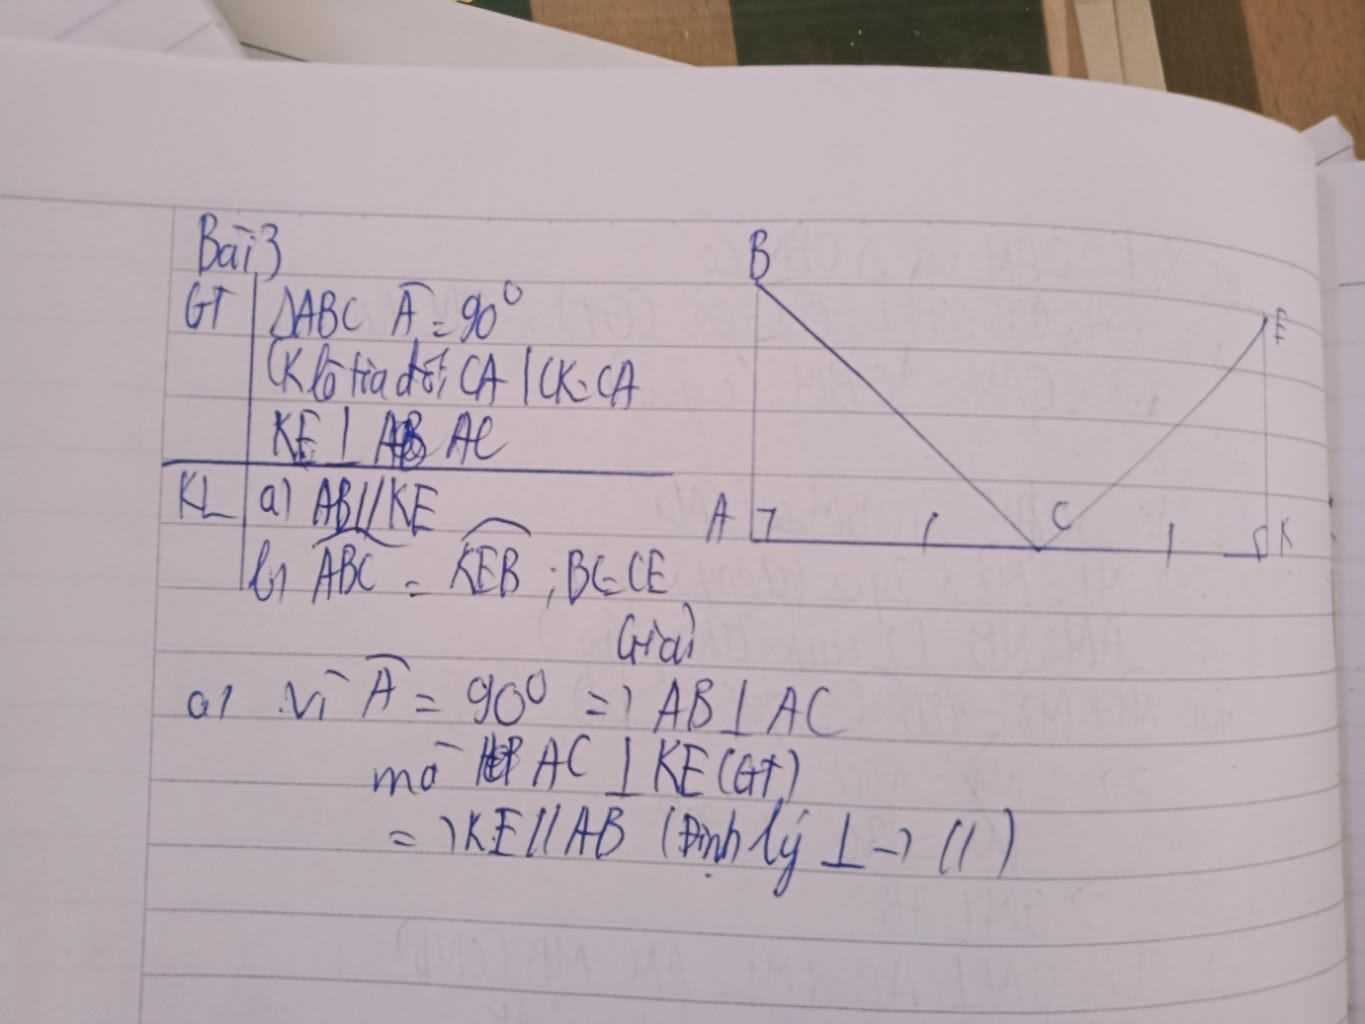 Bài 3
GT ΔABC Â = 90°
CK là tia đối CA | CK = CA
KE ⊥ AC
KL a) AB // KE
b) ABC = KEB ; BC = CE
B
E
A C K
Giải
a) Vì Â = 90° => AB ⊥ AC
mà AC ⊥ KE (GT)
=> KE // AB (Định lý ⊥ → //)